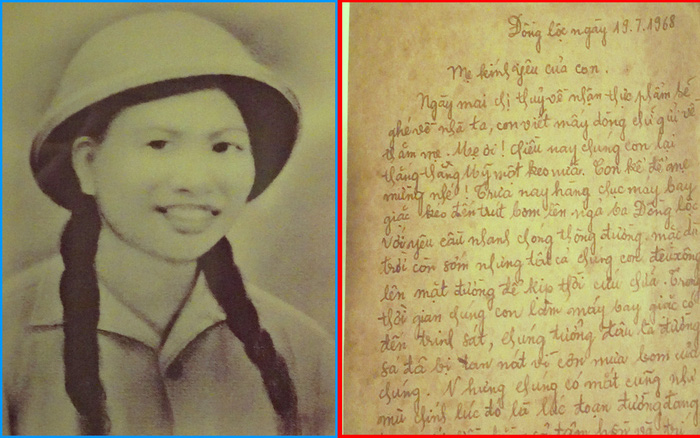 Đồng lộc ngày 19.7.1968
Mẹ kính yêu của con.
Ngày mai chị thuỷ về nhận thực phẩm sẽ
ghé về nhà ta, con viết mấy dòng chữ gửi về
thăm mẹ. Mẹ ơi! chiều nay chúng con lại
thắng thằng Mỹ một keo nữa. Con kể để mẹ
mừng nhé! Trưa nay hàng chục máy bay
giặc kéo đến trút bom lên ngã ba Đồng Lộc
Với yêu cầu nhanh chóng thông đường. mặc dù
trời còn sớm nhưng tất cả chúng con đều xông
lên mặt đường để kịp thời cứu chữa. Trong
thời gian chúng con làm mấy bay giặc có
đến trinh sát, chúng tưởng đâu là đường
sá đã bị tan nát vì cơn mưa bom của
chúng. Nhưng chúng có mắt cũng như
mù chính lúc đó là lúc đoạn đường đang